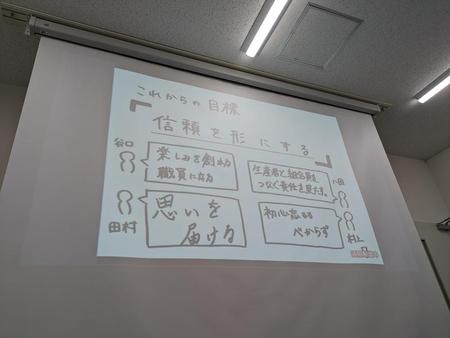 これからの目標
「信頼を形にする」
谷口
楽しみを創れる
職員になる
田村
思いを
届ける
生産者と組合員を
つなぐ責任を果たす。
八田
初心忘るる
べからず
村上